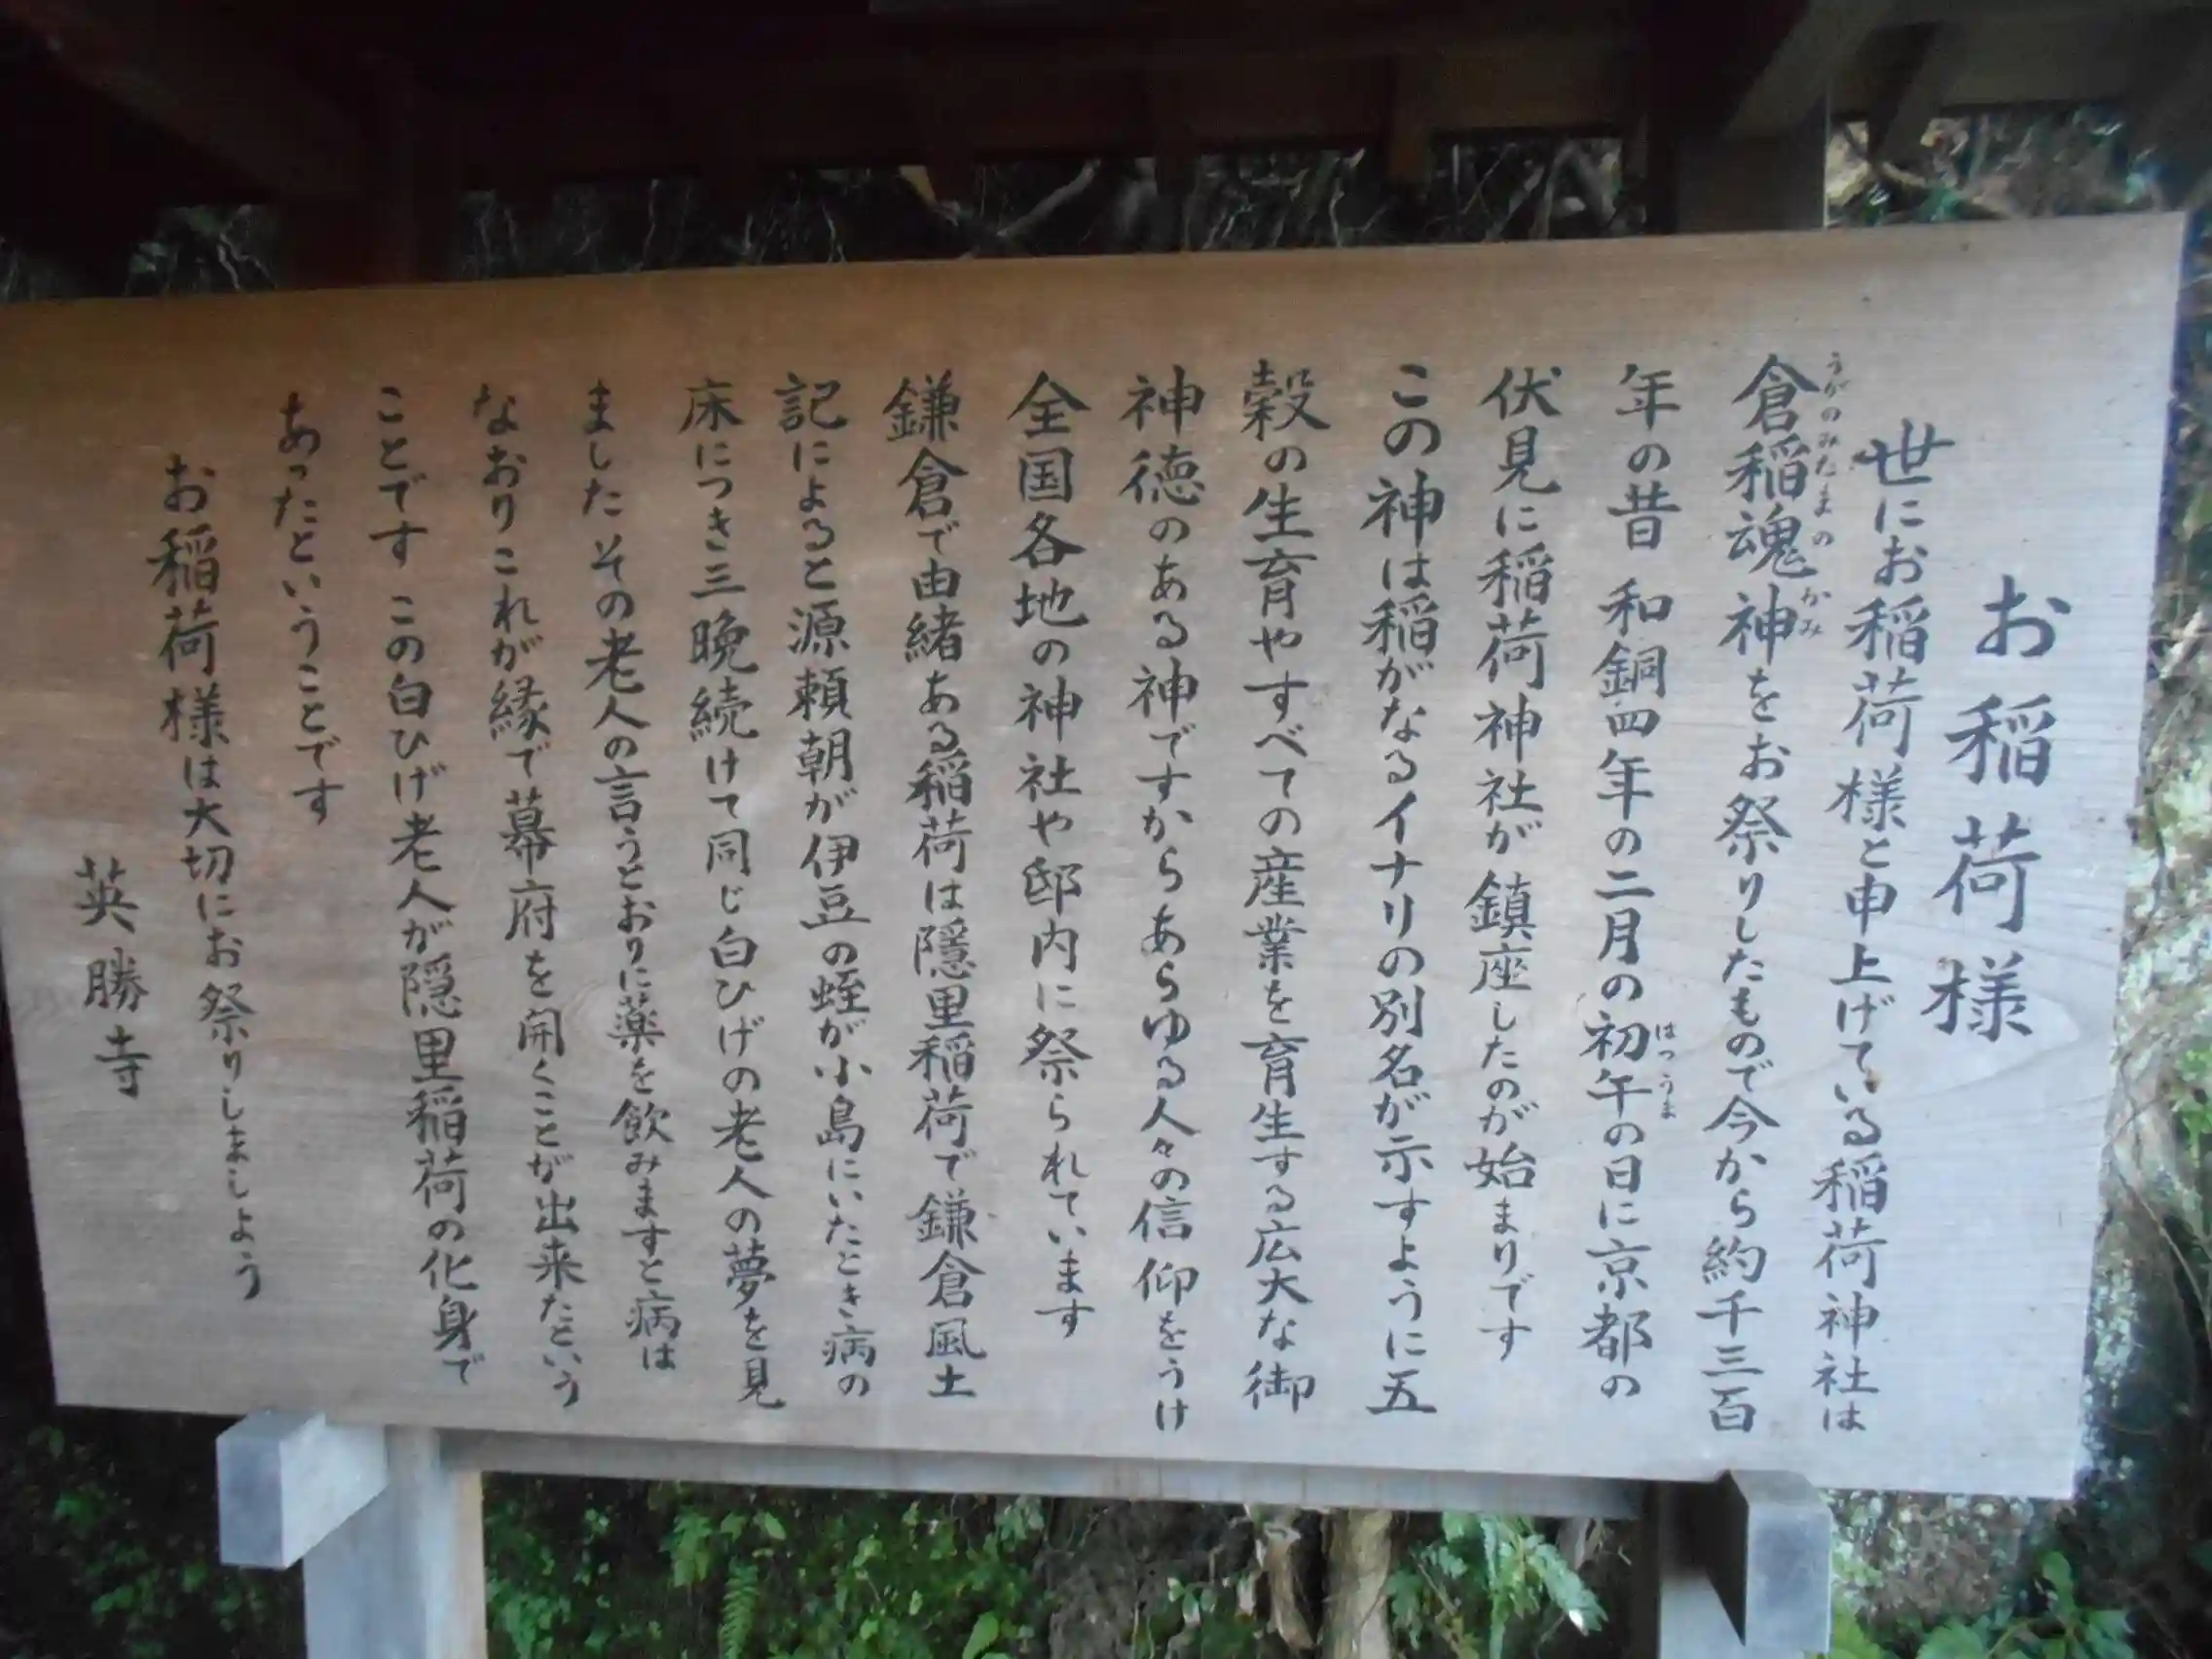 お稲荷様
世にお稲荷様と申上げている稲荷神社は
倉稲魂神をお祭りしたもので今から約千三百
うがのみたまのかみ
年の昔 和銅四年の二月の初午の日に京都の
はつうま
伏見に稲荷神社が鎮座したのが始まりです
この神は稲がなるイナリの別名が示すように五
穀の生育やすべての産業を育生する広大な御
神徳のある神ですからあらゆる人々の信仰をうけ
全国各地の神社や邸内に祭られています
鎌倉で由緒ある稲荷は隠里稲荷で鎌倉風土
記によると源頼朝が伊豆の蛭が小島にいたとき病の
床につき三晩続けて同じ白ひげの老人の夢を見
ました その老人の言うとおりに薬を飲みますと病は
なおりこれが縁で幕府を開くことが出来たという
ことです この白ひげ老人が隠里稲荷の化身で
あったということです
お稲荷様は大切にお祭りしましょう
英勝寺